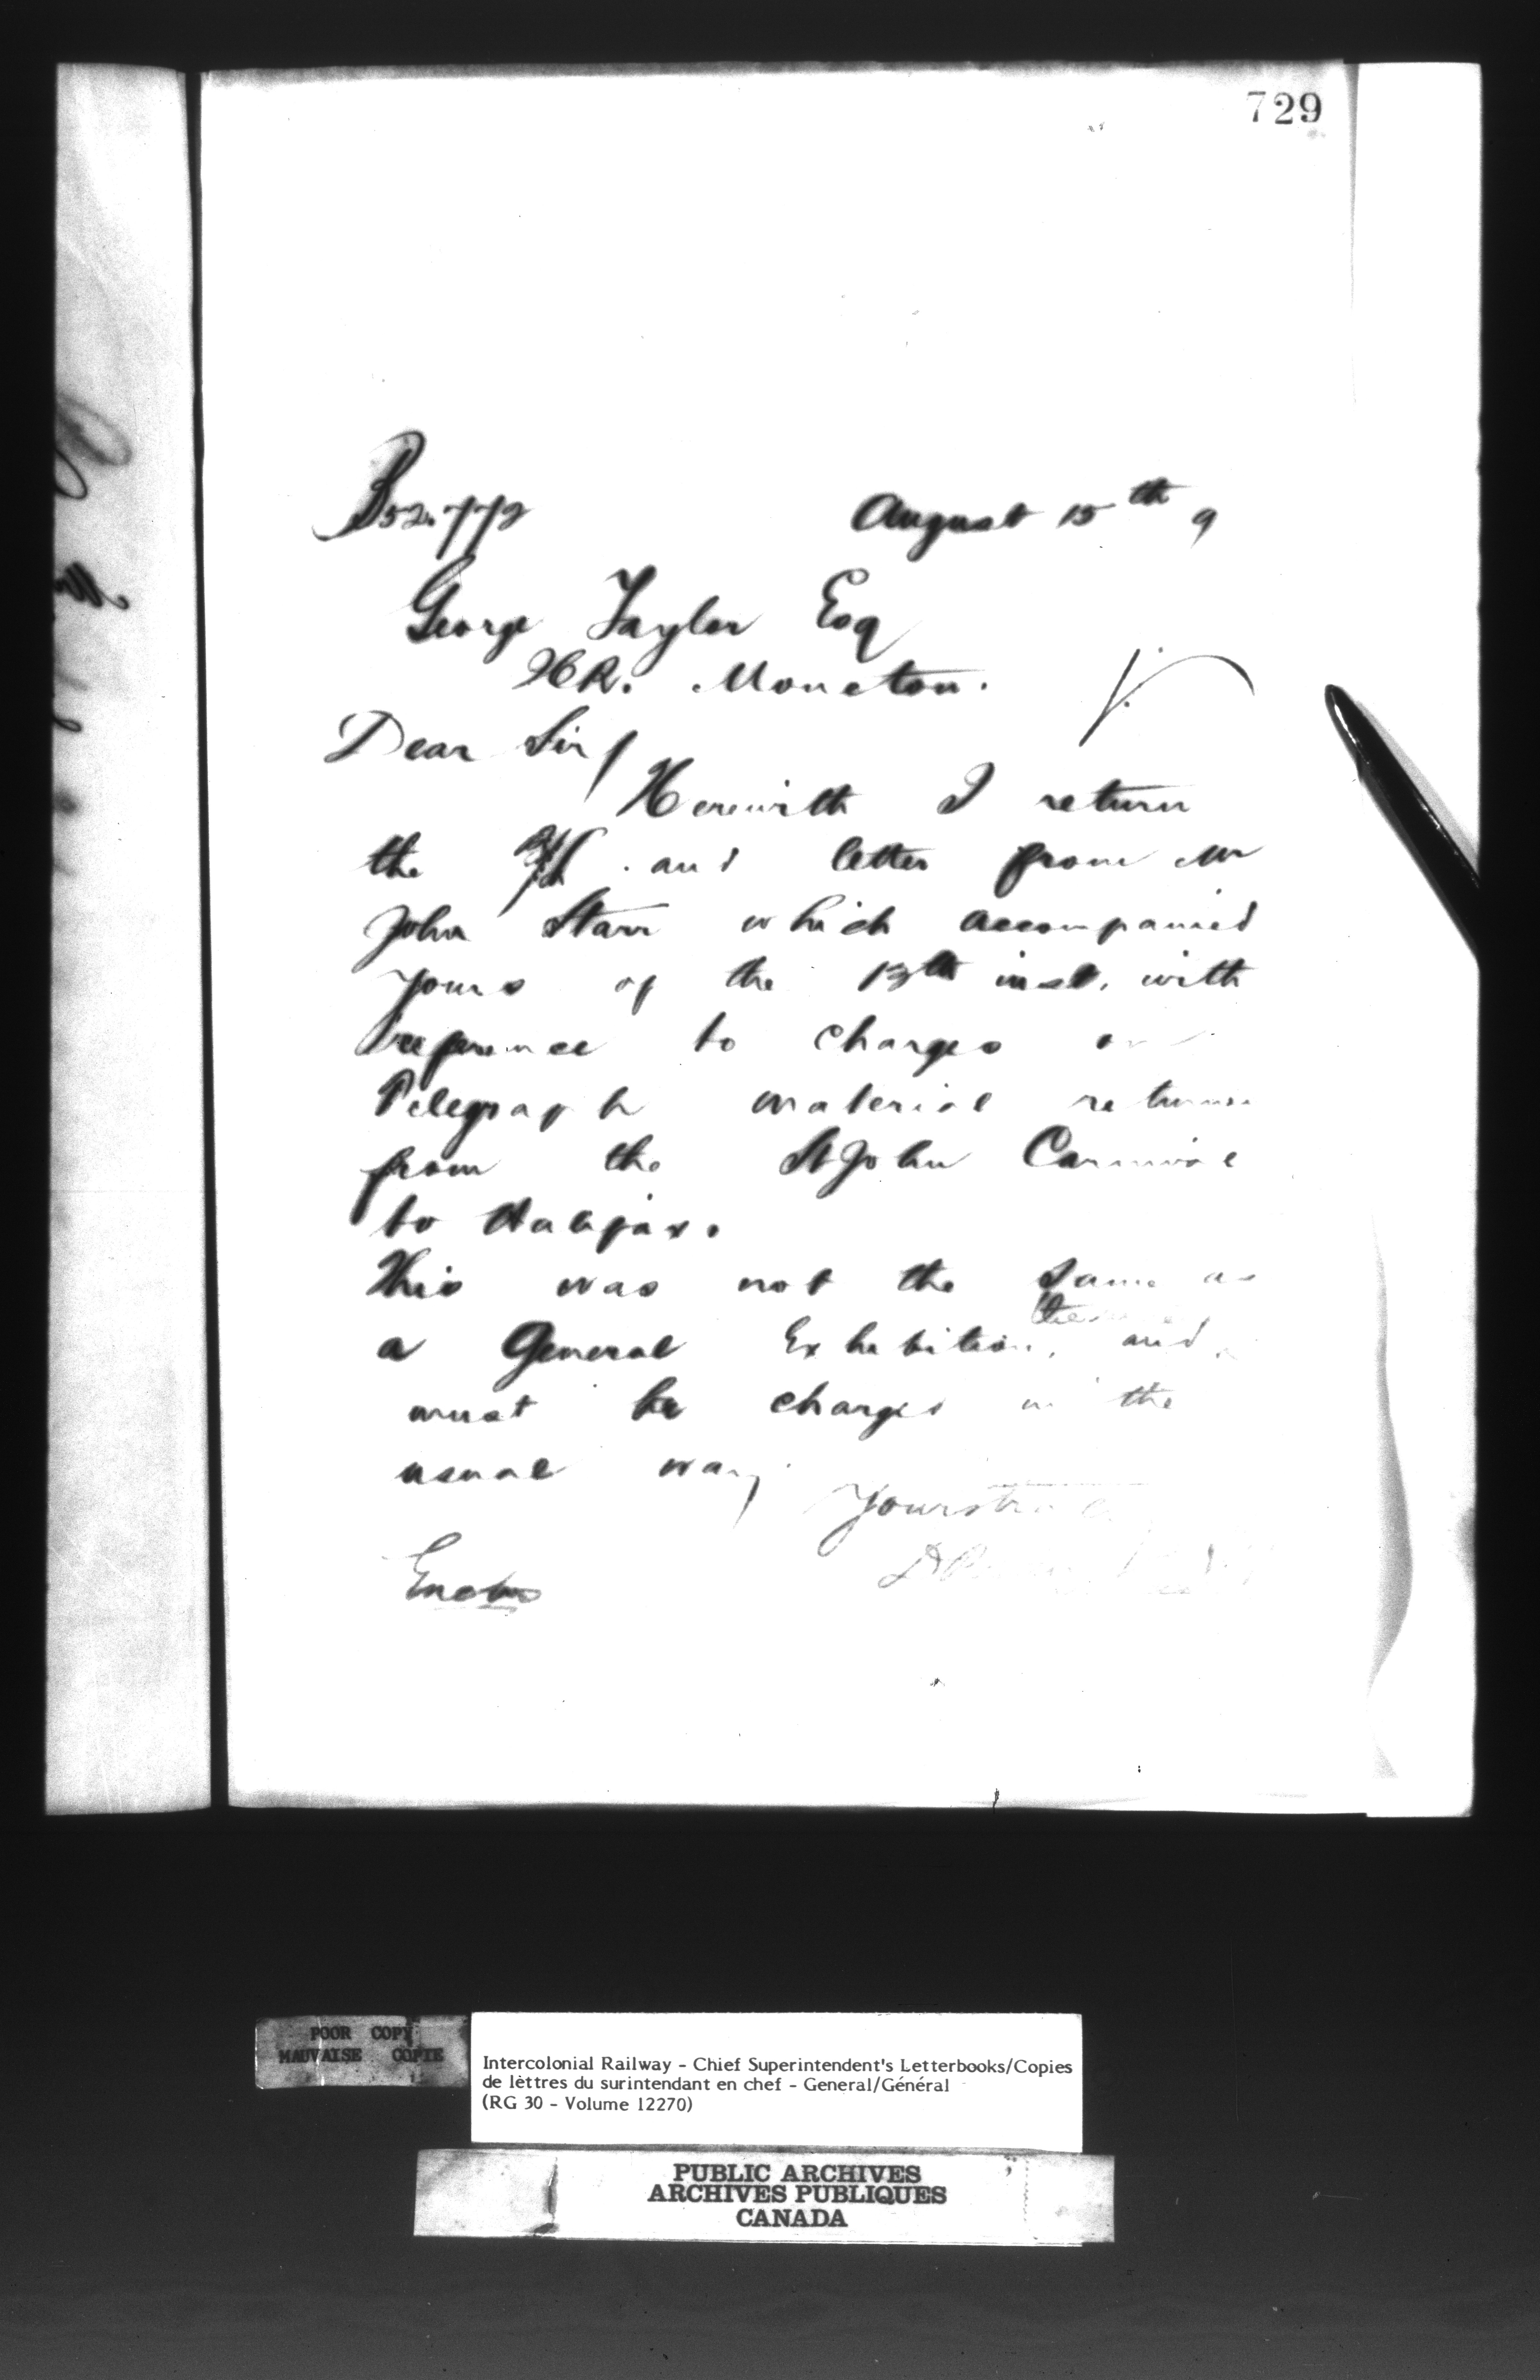 729
B52.772 August 15th 9
George Taylor Esq
ICR. Moncton.
Dear Sir/
Herewith I return
the and letter from Mr
John Starr which accompanied
yours of the 13th inst. with
reference to charges on
Telegraph material return
from the St John Carnival
to Halifax.
This was not the same as
a General Exhibition, and
must be charged in the
usual way.
Yours truly
Enclos
POOR COPY
MAUVAISE COPIE
Intercolonial Railway - Chief Superintendent's Letterbooks/Copies
de lettres du surintendant en chef - General/Général
(RG 30 - Volume 12270)
PUBLIC ARCHIVES
ARCHIVES PUBLIQUES
CANADA